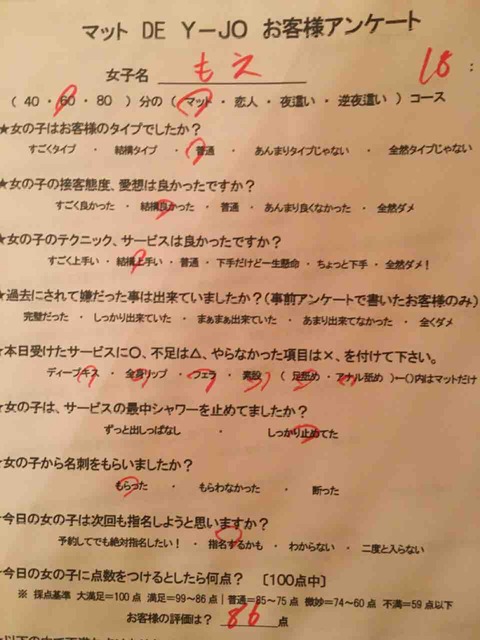 マット DE Y－JO お客様アンケート
女子名 もえ 18 :
( 40 ・ 60 ・ 80 ) 分の ( マット ・ 恋人 ・ 夜這い ・ 逆夜這い ) コース
★女の子はお客様のタイプでしたか？
すごくタイプ ・ 結構タイプ ・ 普通 ・ あんまりタイプじゃない ・ 全然タイプじゃない
★女の子の接客態度、愛想は良かったですか？
すごく良かった ・ 結構良かった ・ 普通 ・ あんまり良くなかった ・ 全然ダメ
★女の子のテクニック、サービスは良かったですか？
すごく上手い ・ 結構上手い ・ 普通 ・ 下手だけど一生懸命 ・ ちょっと下手 ・ 全然ダメ！
★過去にされて嫌だった事は出来ていましたか？(事前アンケートで書いたお客様のみ)
完璧だった ・ しっかり出来ていた ・ まぁまぁ出来ていた ・ あまり出来てなかった ・ 全くダメ
★本日受けたサービスに〇、不足は△、やらなかった項目は×、を付けて下さい。
ディープキス ・ 全身リップ ・ フェラ ・ 素股 ( 足舐め ・ アナル舐め ) ←()内はマットだけ
★女の子は、サービスの最中シャワーを止めてましたか？
ずっと出しっぱなし ・ しっかり止めてた
★女の子から名刺をもらいましたか？
もらった ・ もらわなかった ・ 断った
★今日の女の子は次回も指名しようと思いますか？
予約してでも絶対指名したい！ ・ 指名するかも ・ わからない ・ 二度と入らない
★今日の女の子に点数をつけるとしたら何点？ [100点中]
※ 採点基準 大満足＝100点 満足＝99～86点｜普通＝85～75点 微妙＝74～60点 不満＝59点以下
お客様の評価は？ 86 点